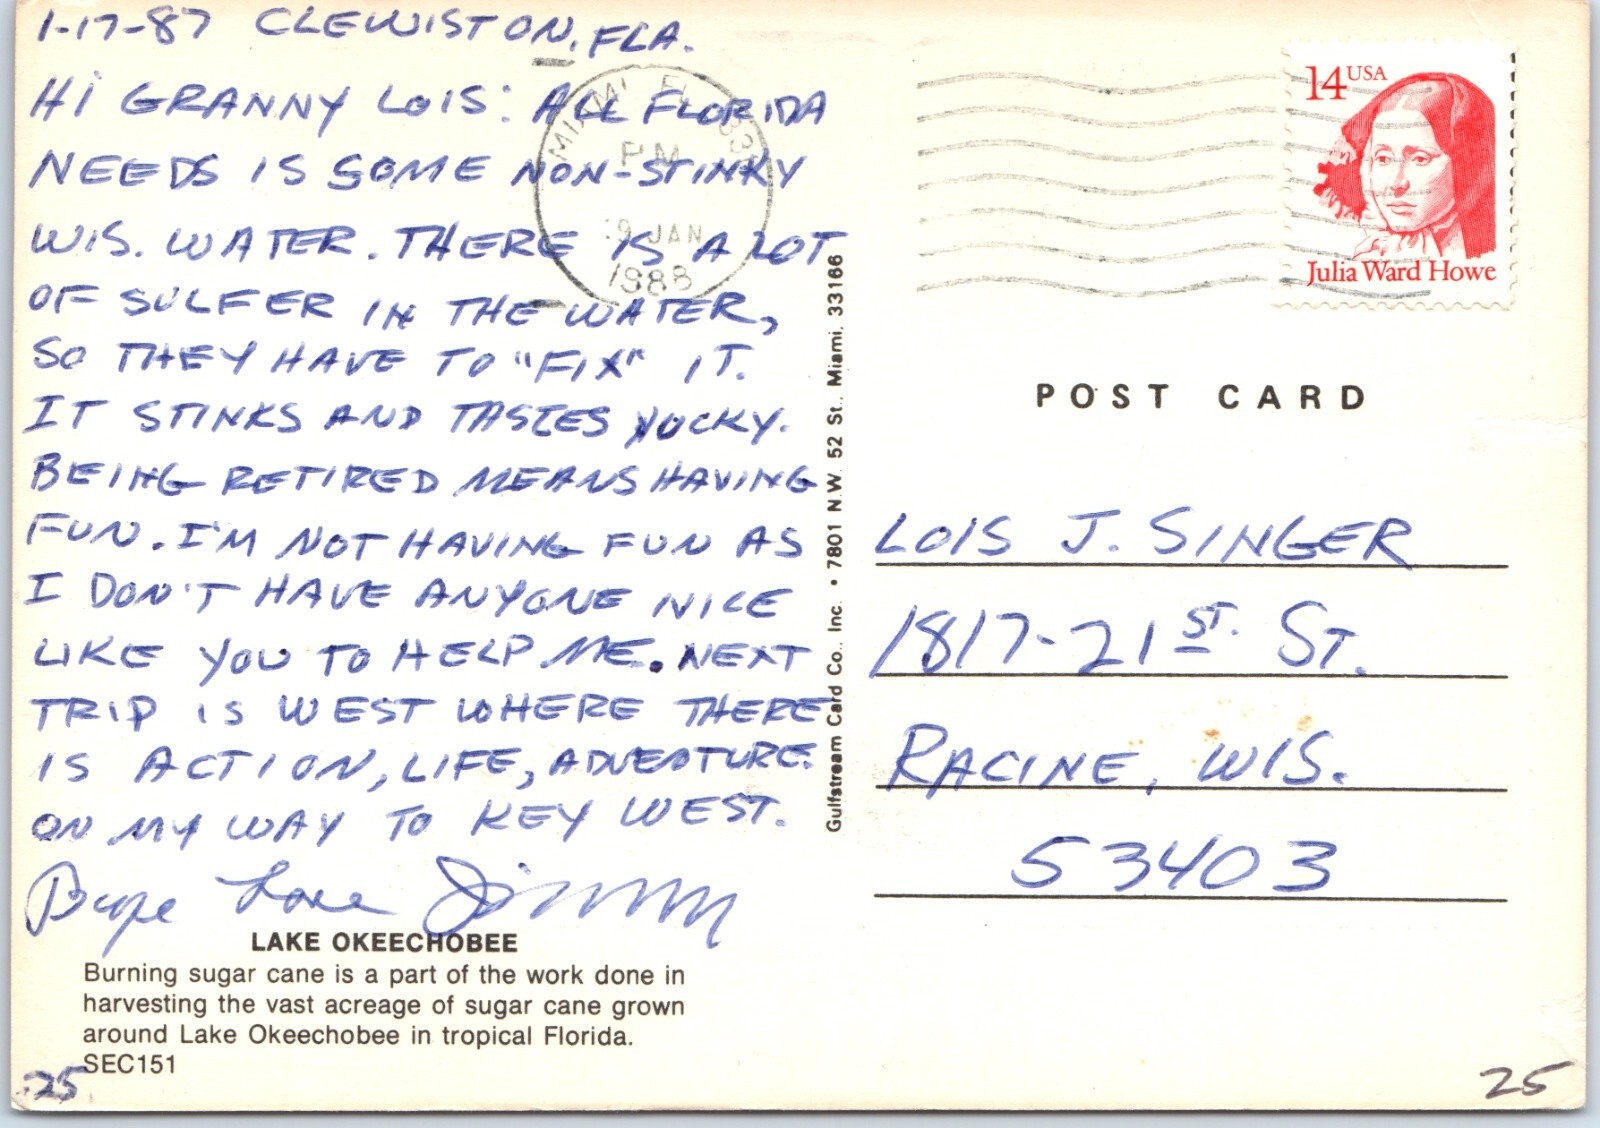 1-17-87 CLEWISTON, FLA.
HI GRANNY LOIS: ALL FLORIDA
NEEDS IS SOME NON-STINKY
WIS. WATER. THERE IS A LOT
OF SULFER IN THE WATER,
SO THEY HAVE TO "FIX" IT.
IT STINKS AND TASTES YUCKY.
BEING RETIRED MEANS HAVING
FUN. I'M NOT HAVING FUN AS
I DON'T HAVE ANYONE NICE
LIKE YOU TO HELP ME. NEXT
TRIP IS WEST WHERE THERE
IS ACTION, LIFE, ADVENTURE.
ON MY WAY TO KEY WEST.
Love
LAKE OKEECHOBEE
Burning sugar cane is a part of the work done in
harvesting the vast acreage of sugar cane grown
around Lake Okeechobee in tropical Florida.
SEC151
25
Gulfstream Card Co., Inc. • 7801 N.W. 52 St., Miami, 33166
MIAMI FL
PM
JAN
1988
14 USA
Julia Ward Howe
POST CARD
LOIS J. SINGER
1817-21ST. ST.
RACINE, WIS.
53403
25